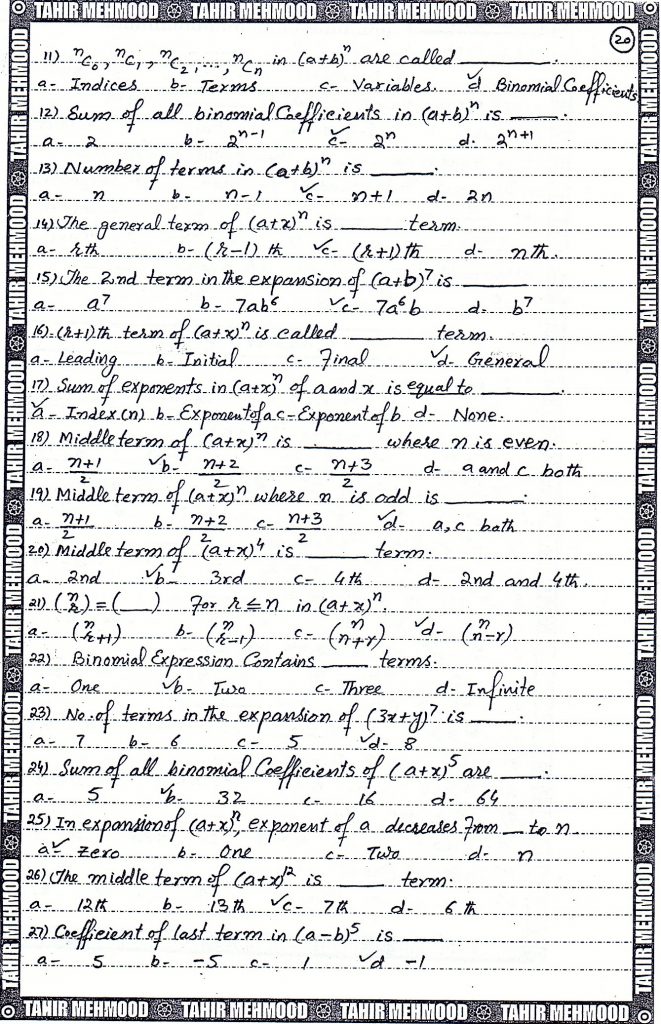 TAHIR MEHMOOD TAHIR MEHMOOD TAHIR MEHMOOD TAHIR MEHMOOD
20
11) ⁿC₀, ⁿC₁, ⁿC₂, ..., ⁿCₙ in (a+b)ⁿ are called ______.
a- Indices b- Terms c- Variables. ✓d Binomial Coefficients
12) Sum of all binomial Coefficients in (a+b)ⁿ is ______.
a- 2 b- 2ⁿ⁻¹ ✓c- 2ⁿ d- 2ⁿ⁺¹
13) Number of terms in (a+b)ⁿ is ______.
a- n b- n-1 ✓c- n+1 d- 2n
14) The general term of (a+x)ⁿ is ______ term.
a- rth b- (r-1) th ✓c- (r+1) th d- nth.
15) The 2nd term in the expansion of (a+b)⁷ is ______
a- a⁷ b- 7ab⁶ ✓c- 7a⁶b d- b⁷
16) (r+1)th term of (a+x)ⁿ is called ______ term.
a- Leading b- Initial c- Final ✓d- General
17) Sum of exponents in (a+x)ⁿ of a and x is equal to ______.
✓a- Index (n) b- Exponent of a c- Exponent of b d- None.
18) Middle term of (a+x)ⁿ is ______ where n is even.
a- n+1/2 ✓b- n+2/2 c- n+3/2 d- a and c both
19) Middle term of (a+x)ⁿ where n is odd is ______.
a- n+1/2 b- n+2/2 c- n+3/2 ✓d- a, c both
20) Middle term of (a+x)⁴ is ______ term.
a- 2nd ✓b- 3rd c- 4th d- 2nd and 4th.
21) (n r) = (___) For r ≤ n in (a+x)ⁿ.
a- (n r+1) b- (n r-1) c- (n n+r) ✓d- (n n-r)
22) Binomial Expression Contains ____ terms.
a- One ✓b- Two c- Three d- Infinite
23) No. of terms in the expansion of (3x+y)⁷ is ____.
a- 7 b- 6 c- 5 ✓d- 8
24) Sum of all binomial Coefficients of (a+x)⁵ are ____.
a- 5 ✓b- 32 c- 16 d- 64
25) In expansion of (a+x)ⁿ, exponent of a decreases from __ to n.
a✓ Zero b- One c- Two d- n
26) The middle term of (a+x)¹² is ____ term.
a- 12th b- 13th ✓c- 7th d- 6th
27) Coefficient of last term in (a-b)⁵ is ____
a- 5 b- -5 c- 1 ✓d -1
TAHIR MEHMOOD TAHIR MEHMOOD TAHIR MEHMOOD TAHIR MEHMOOD
TAHIR MEHMOOD TAHIR MEHMOOD TAHIR MEHMOOD TAHIR MEHMOOD TAHIR MEHMOOD TAHIR MEHMOOD
TAHIR MEHMOOD TAHIR MEHMOOD TAHIR MEHMOOD TAHIR MEHMOOD TAHIR MEHMOOD TAHIR MEHMOOD